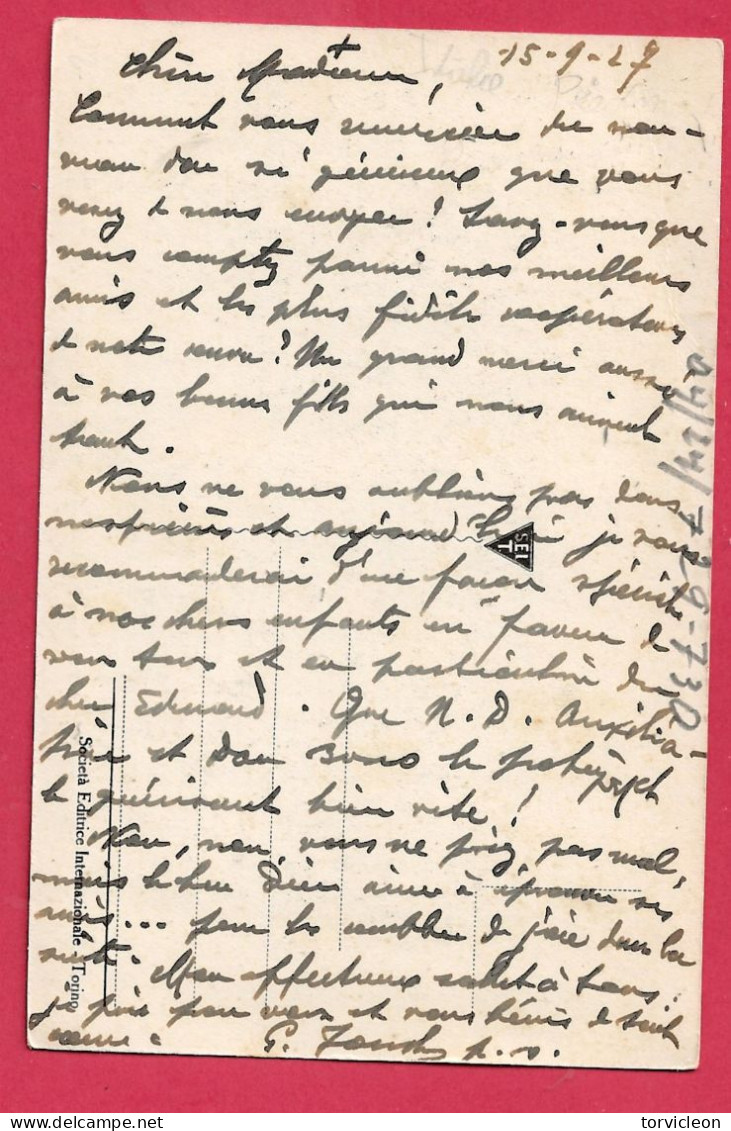 15-9-27
Chère Madame,
Comment vous remercier du nou-
veau don si généreux que vous
venez de nous envoyer! Savez-vous que
vous comptez parmi nos meilleurs
amis et les plus fidèles coopérateurs
de notre œuvre? Un grand merci aussi
à vos bons fils qui nous aiment
tant.
Nous ne vous oublions pas dans
nos prières et aujourd'hui je vous
recommanderai d'une façon spéciale
à nos chers enfants en faveur de
vous tous et en particulier du
cher Edouard. Que N. D. Auxilia-
trice et Don Bosco le protègent
le guérissant bien vite!
Non, non, vous ne priez pas mal,
mais le bon Dieu aime à éprouver ses
amis... pour les combler de joie dans la
suite. Mon affectueux salut à tous.
Je prie pour vous et vous bénis de tout
cœur. G.
SEI
T
Società Editrice Internazionale - Torino